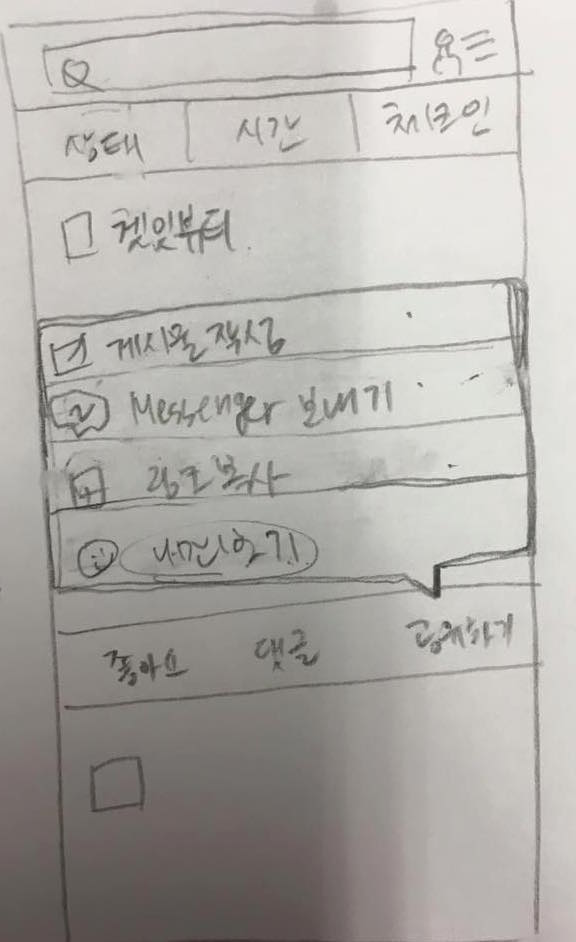 상태 시간 체크인
겟잇뷰티
게시물 작성
Messenger 보내기
링크 복사
좋아요 댓글 공유하기